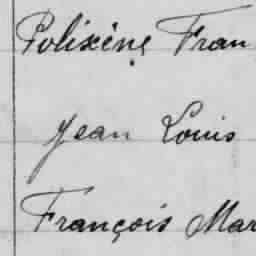 Polixène Fran
Jean Louis
François Mar